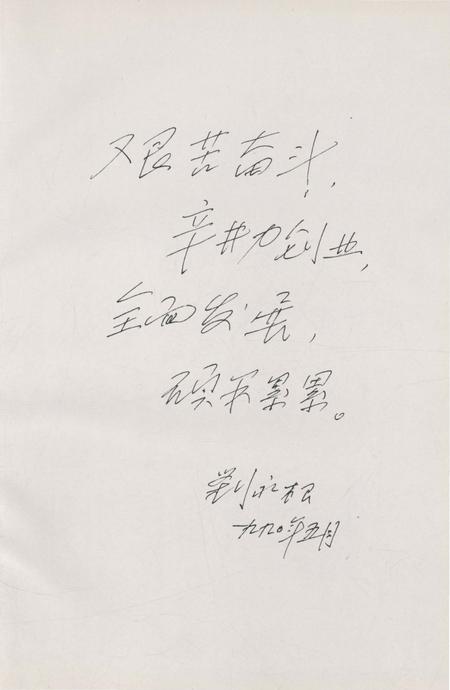 艰苦奋斗，
辛勤创业，
全面发展，
硕果累累。
劉永根
一九九〇年五月